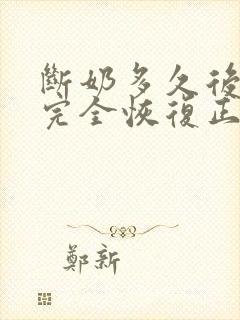 斷奶多久後
完全恢復正
鄭新